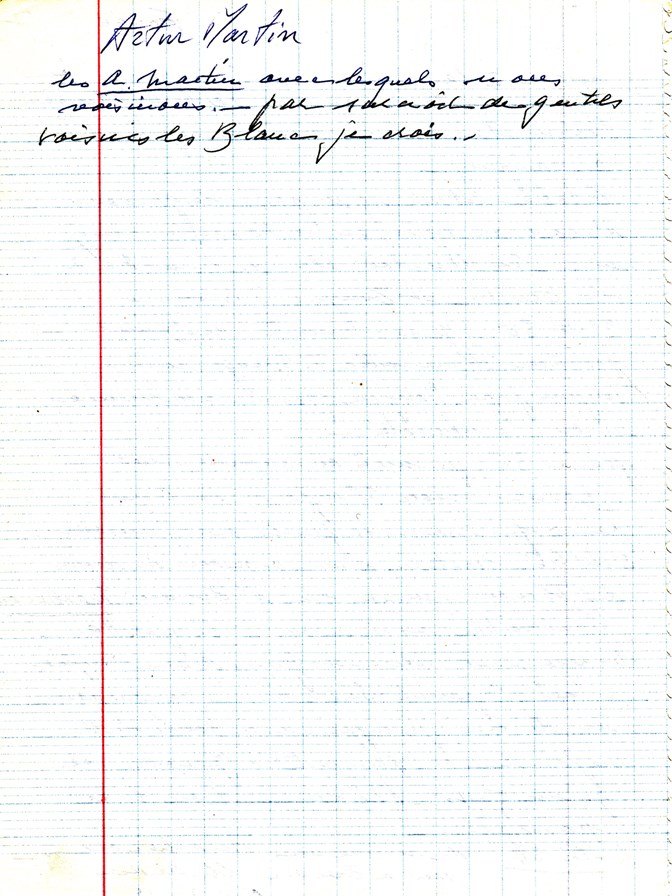 Artur Martin
les A. Martin avec lesquels nous
voisinons. — par de gentils
voisins les Blanc, je crois. -